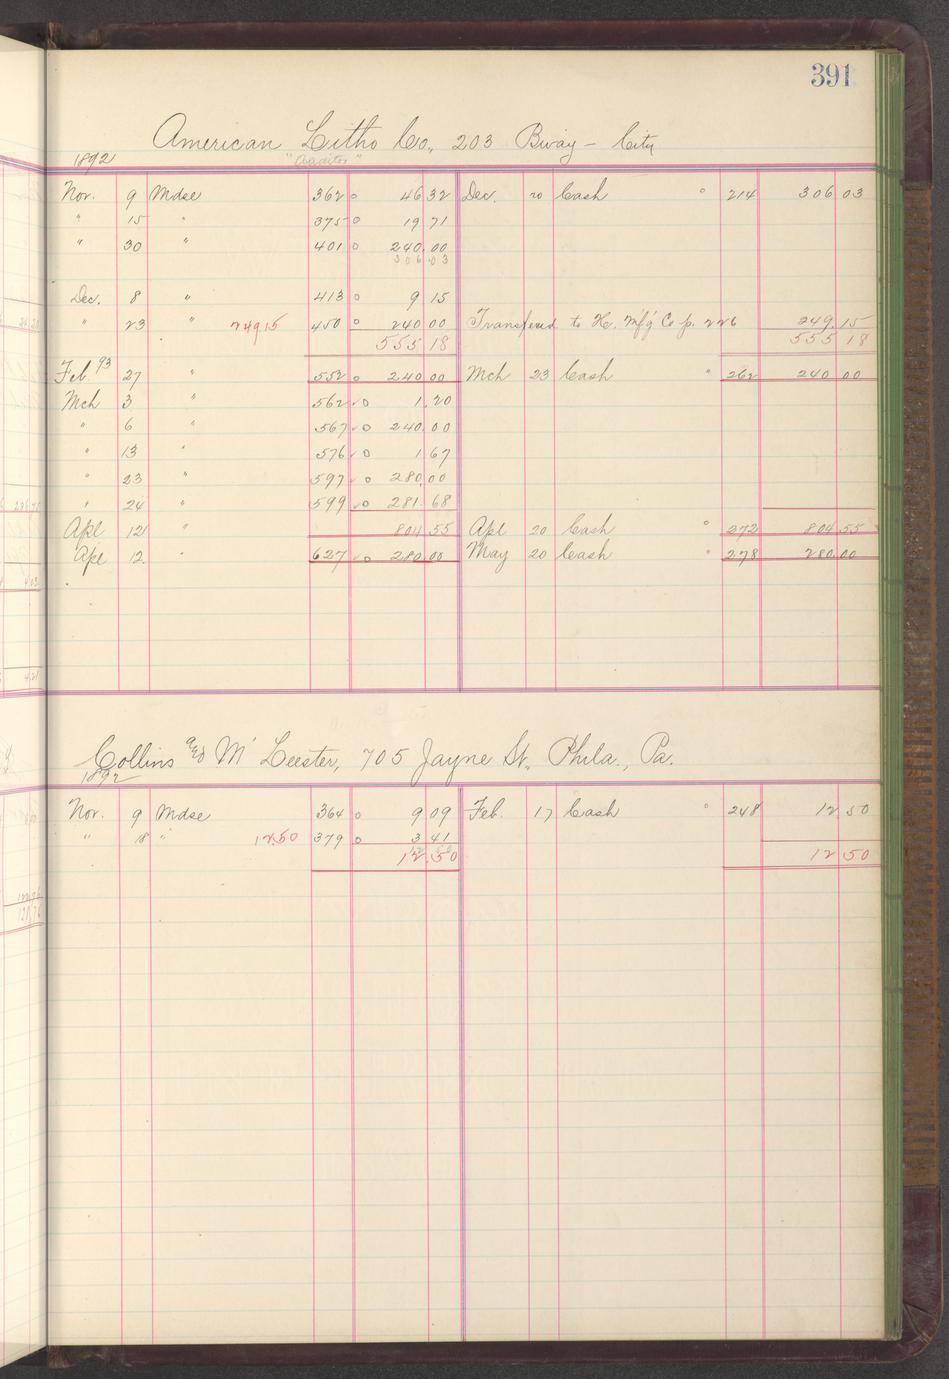 391
American Litho Co., 203 Bway - City
"Auditor"
1892
Nov. 9 Mdse 362 o 46 32 Dec. 20 Cash " 214 306 03
" 15 " 375 o 19 71
" 30 " 401 o 240.00
306 03
Dec. 8 " 413 o 9 15
" 23 " 249 15 450 o 240 00 Transfered to H. Mfg Co p. 226 249.15
555 18 555 18
Feb 93 27 " 552 o 240 00 Mch 23 Cash " 262 240 00
Mch 3 " 562 o 1.20
" 6 " 567 o 240.00
" 13 " 576 o 1 67
" 23 " 597 o 280.00
" 24 " 599 o 281.68
Apl 12 " 804.55 Apl 20 Cash " 272 804 55
Apl 12. " 627 o 280.00 May 20 Cash " 278 280.00
Collins and Mc Leester, 705 Jayne St., Phila., Pa.
1892
Nov. 9 Mdse 364 o 9 09 Feb. 17 Cash " 248 12 50
" 18 " 12.50 379 o 3 41
12 50
12.50 12 50